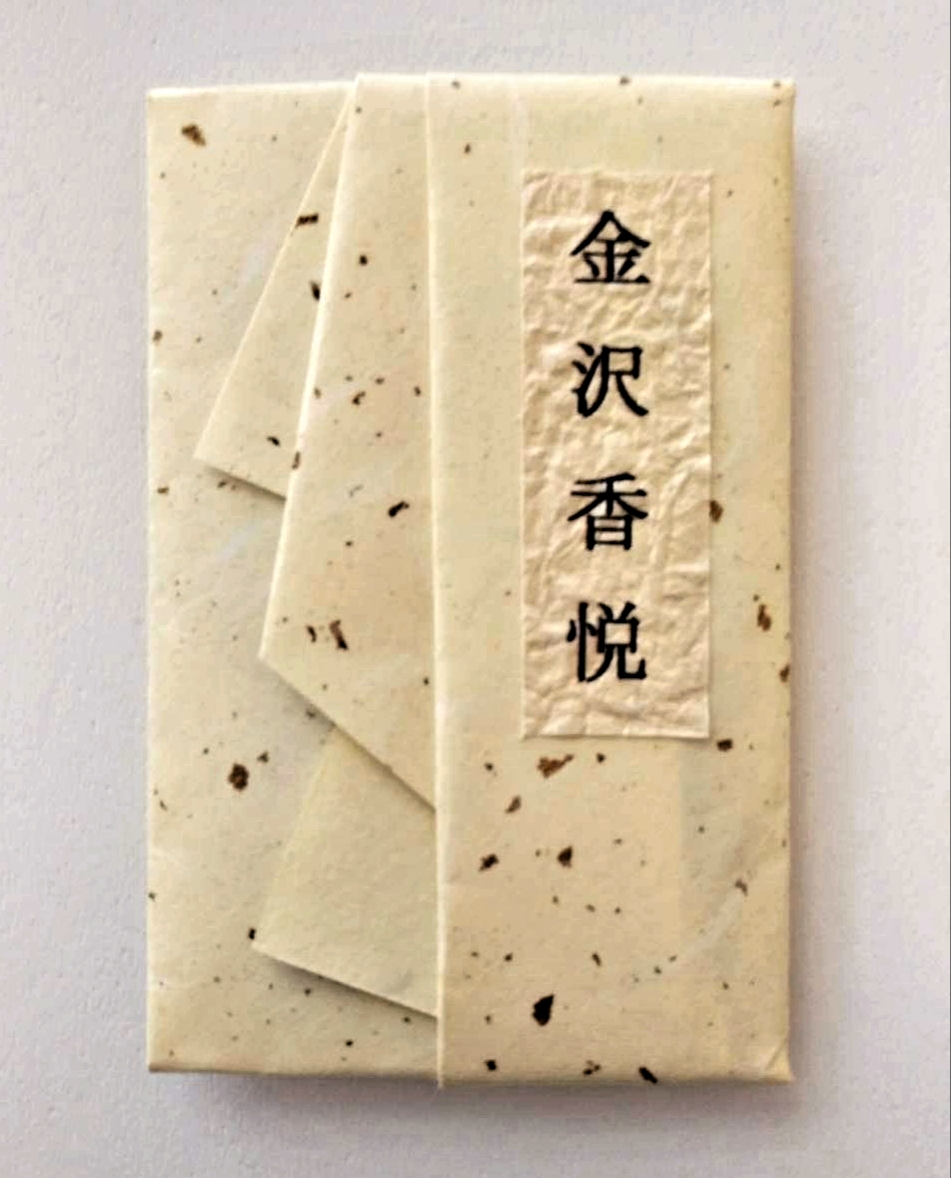 金沢香悦